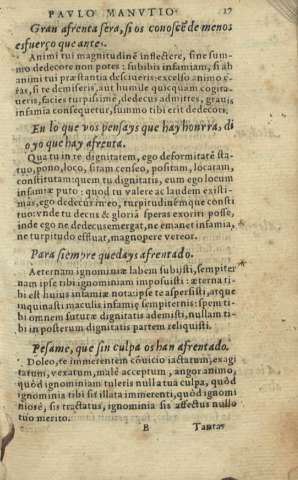 PAVLO MANVTIO. 17
Gran afrenta sera, si os conoscē de menos
esfuerço que ante.
Animi tui magnitudinē inflectere, sine sum-
mo dedecore non potes: subibis infamiam, si ab
animi tui præstantia desciueris: excelso animo e-
ras, si te demiseris, aut humile quicquam cogita-
ueris, facies turpissimè, dedecus admittes, grauis
infamia consequetur, summo tibi erit dedecori.
En lo que vos pensays que hay honrra, di
o yo que hay afrenta.
Qua tu in re dignitatem, ego deformitatē sta-
tuo, pono, loco, sitam censeo, positam, locatam,
constitutam: quem tu dignitatis, eum ego locum
infamiæ puto: quod tu valere ad laudem existi-
mas, ego dedecus meo, turpitudinémque consti
tuo: vnde tu decus & gloriā speras exoriri posse,
inde ego ne dedecus emergat, ne emanet infamia,
ne turpitudo effluat, magnopere vereor.
Para siempre quedays afrentado.
Aeternam ignominiæ labem subijsti, sempiter
nam ipse tibi ignominiam imposuisti: æterna ti-
bi est huius infamiæ nota: ipse te aspersisti, atque
inquinasti maculis infamiæ sempiternis: spem ti-
bi omnem futuræ dignitatis ademisti, nullam ti-
bi in posterum dignitatis partem reliquisti.
Pesame, que sin culpa os han afrentado.
Doleo, te immerentem cōuicio iactatum, exagi
tatum, vexatum, malè acceptum, angor animo,
quòd ignominiam tuleris nulla tua culpa, quòd
ignominia tibi sit illata immerenti, quòd ignomi
niosè, sis tractatus, ignominia sis affectus nullo
tuo merito.
B Tantas